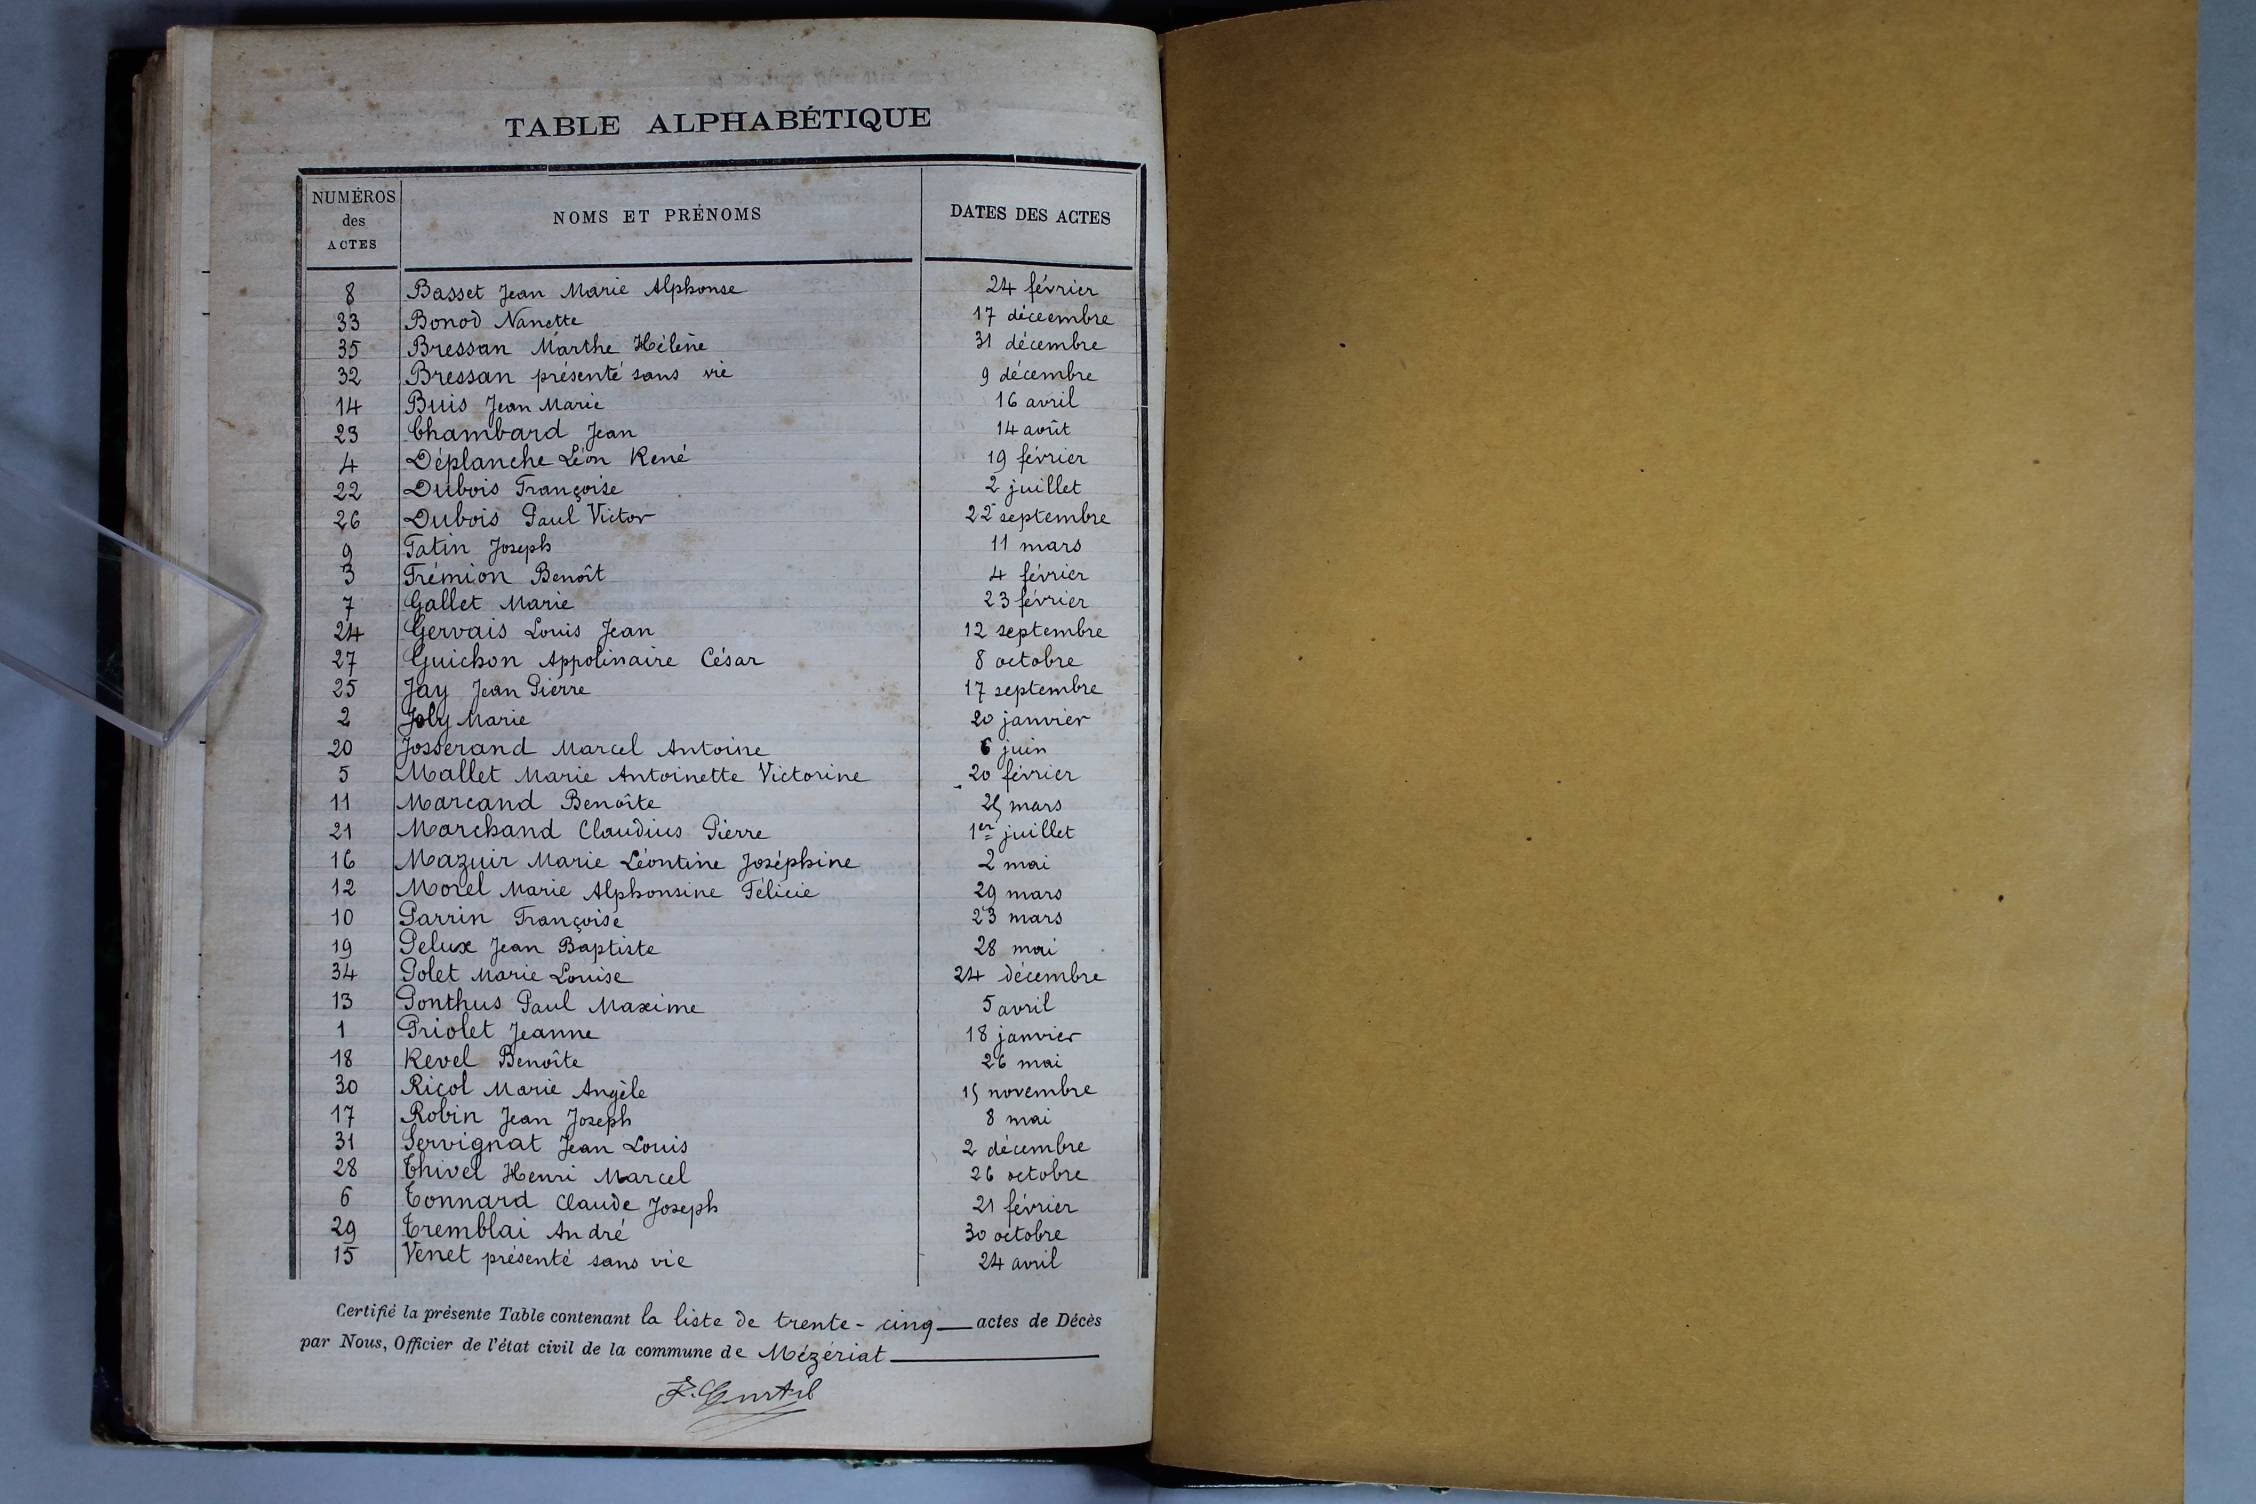 TABLE ALPHABÉTIQUE
NUMÉROS des ACTES NOMS ET PRÉNOMS DATES DES ACTES
8 Basset Jean Marie Alphonse 24 février
33 Bonod Nanette 17 déceembre
35 Bressan Marthe Hélène 31 décembre
32 Bressan présenté sans vie 9 décembre
14 Buis Jean Marie 16 avril
23 Chambard Jean 14 août
4 Déplanche Léon René 19 février
22 Dubois Françoise 2 juillet
26 Dubois Paul Victor 22 septembre
9 Fatin Joseph 11 mars
3 Frémion Benoît 4 février
7 Gallet Marie 23 février
24 Gervais Louis Jean 12 septembre
27 Guichon Appolinaire César 8 octobre
25 Jay Jean Pierre 17 septembre
2 Joly Marie 20 janvier
20 Josserand Marcel Antoine 6 juin
5 Mallet Marie Antoinette Victorine 20 février
11 Marcand Benoîte 25 mars
21 Marchand Claudius Pierre 1er juillet
16 Mazuir Marie Léontine Joséphine 2 mai
12 Morel Marie Alphonsine Félicie 29 mars
10 Parrin Françoise 23 mars
19 Pelux Jean Baptiste 28 mai
34 Polet Marie Louise 24 décembre
13 Ponthus Paul Maxime 5 avril
1 Priolet Jeanne 18 janvier
18 Revel Benoîte 26 mai
30 Ricol Marie Angèle 15 novembre
17 Robin Jean Joseph 8 mai
31 Servignat Jean Louis 2 décembre
28 Thivel Henri Marcel 26 octobre
6 Tonnard Claude Joseph 21 février
29 Tremblai André 30 octobre
15 Venet présenté sans vie 24 avril
Certifié la présente Table contenant la liste de trente-cinq actes de Décès
par Nous, Officier de l'état civil de la commune de Mézériat